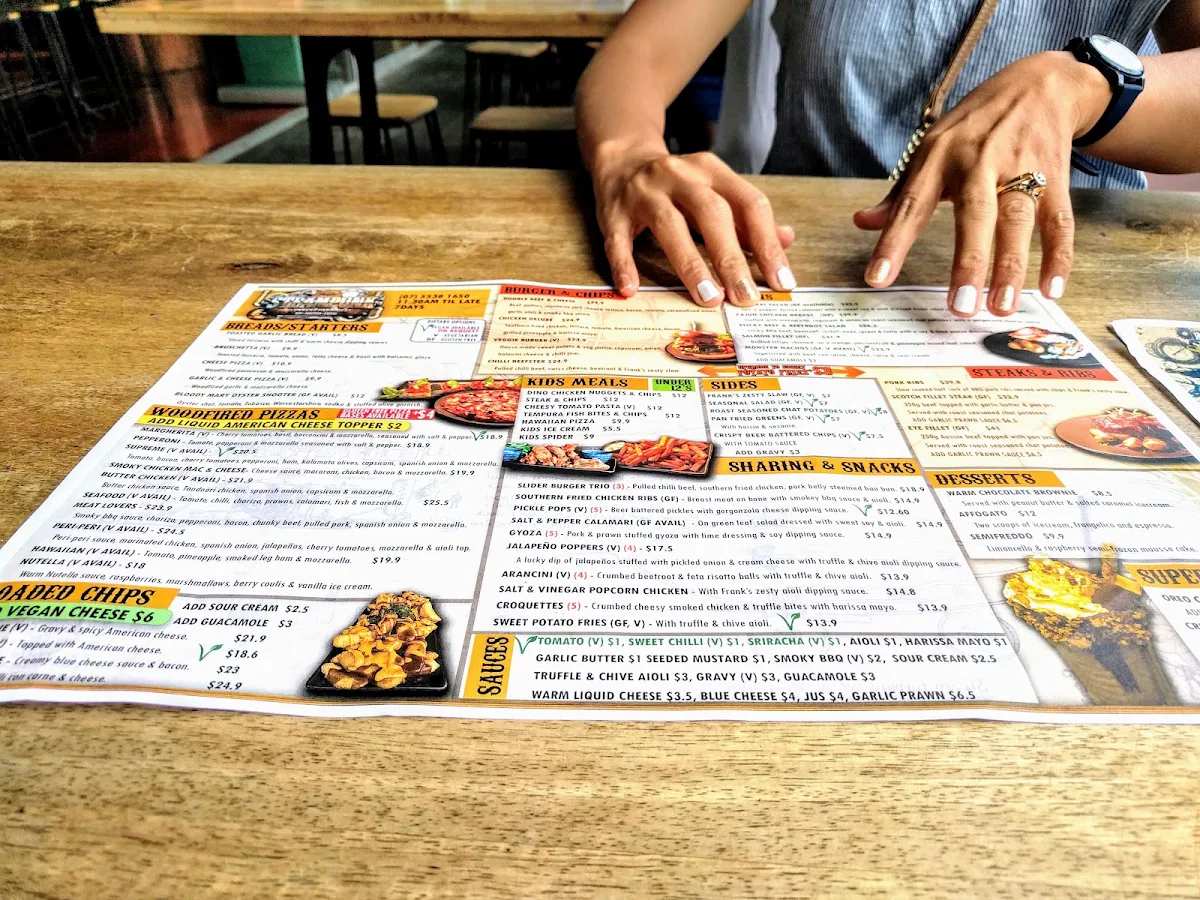 (07) 5538 1650
11.30AM TIL LATE
7DAYS
DIETARY OPTIONS
VEGAN AVAILABLE
ON REQUESTS
V VEGETARIAN
GF GLUTEN FREE
BREADS/STARTERS
TOASTED GARLIC BREAD (V)
BRUSCHETTA (V) $9.9
Toasted focaccia, tomato, onion, fetta cheese & basil with balsamic glaze
CHEESE PIZZA (V) $10.9
Woodfired parmesan & mozzarella cheese.
GARLIC & CHEESE PIZZA (V) $9.9
Woodfired garlic & mozzarella cheese
BLOODY MARY OYSTER SHOOTER (GF AVAIL) $12
WOODFIRED PIZZAS
ADD LIQUID AMERICAN CHEESE TOPPER $2
MARGHERITA (V) - Cherry tomatoes, basil, bocconcini & mozzarella, seasoned with salt & pepper. $18.9
PEPPERONI - Tomato, pepperoni & mozzarella seasoned with salt & pepper. $18.9
SUPREME (V AVAIL) - $20.5
Tomato, bacon, cherry tomatoes, pepperoni, ham, kalamata olives, capsicum, spanish onion & mozzarella.
SMOKY CHICKEN MAC & CHEESE- Cheese sauce, macaroni, chicken, bacon & mozzarella. $19.9
BUTTER CHICKEN (V AVAIL) - $21.9
Butter chicken sauce, Tandoori chicken, spanish onion, capsicum & mozzarella.
SEAFOOD (V AVAIL) - Tomato, chilli, chorizo, prawns, calamari, fish & mozzarella. $25.5
MEAT LOVERS - $23.9
Smoky bbq sauce, chorizo, pepperoni, bacon, chunky beef, pulled pork, spanish onion & mozzarella.
PERI-PERI (V AVAIL) - $24.5
Peri-peri sauce, marinated chicken, spanish onion, jalapeños, cherry tomatoes, mozzarella & aioli top.
HAWAIIAN (V AVAIL) - Tomato, pineapple, smoked leg ham & mozzarella. $19.9
NUTELLA (V) - $18
Warm Nutella sauce, raspberries, marshmallows, berry coulis & vanilla ice cream.
OADED CHIPS
VEGAN CHEESE $6
ADD SOUR CREAM $2.5
ADD GUACAMOLE $3
(V) - Gravy & spicy American cheese. $21.9
- Topped with American cheese. $18.6
- Creamy blue cheese sauce & bacon. $23
con carne & cheese. $24.9
BURGER & CHIPS
DOUBLE BEEF & CHEESE
CHICKEN DELUXE $24.9
VEGGIE BURGER (V) $23.9
haloumi cheese & chilli jam.
CHILLI BEEFSTER $24.9
Beef patty, chilli, swiss cheese, beetroot & Frank's zesty slaw.
KIDS MEALS
UNDER
12'S
DINO CHICKEN NUGGETS & CHIPS $12
STEAK & CHIPS $12
CHEESY TOMATO PASTA (V) $12
TEMPURA FISH BITES & CHIPS $12
HAWAIIAN PIZZA $9.9
KIDS ICE CREAM $5.5
KIDS SPIDER $9
SIDES
FRANK'S ZESTY SLAW (GF, V) $7
SEASONAL SALAD (GF, V) $7
ROAST SEASONED CHAT POTATOES (GF, V) $8
PAN FRIED GREENS (GF, V) $7
With hoisin & sesame.
CRISPY BEER BATTERED CHIPS (V) $7.5
WITH TOMATO SAUCE
ADD GRAVY $3
SHARING & SNACKS
SLIDER BURGER TRIO (3) - Pulled chilli beef, southern fried chicken, pork belly steamed bao bun. $18.9
SOUTHERN FRIED CHICKEN RIBS (GF) - Breast meat on bone with smokey bbq sauce & aioli. $14.9
PICKLE POPS (V) (5) - Beer battered pickles with gorgonzola cheese dipping sauce. $12.60
SALT & PEPPER CALAMARI (GF AVAIL) - On green leaf salad dressed with sweet soy & aioli. $14.9
GYOZA (5) - Pork & prawn stuffed gyoza with lime dressing & soy dipping sauce. $14.9
JALAPEÑO POPPERS (V) (4) - $17.5
A lucky dip of jalapeños stuffed with pickled onion & cream cheese with truffle & chive aioli dipping sauce.
ARANCINI (V) (4) - Crumbed beetroot & feta risotto balls with truffle & chive aioli. $13.9
SALT & VINEGAR POPCORN CHICKEN - With Frank's zesty aioli dipping sauce. $14.8
CROQUETTES (5) - Crumbed cheesy smoked chicken & truffle bites with harissa mayo. $13.9
SWEET POTATO FRIES (GF, V) - With truffle & chive aioli. $13.9
SAUCES
TOMATO (V) $1, SWEET CHILLI (V) $1, SRIRACHA (V) $1, AIOLI $1, HARISSA MAYO $1
GARLIC BUTTER $1 SEEDED MUSTARD $1, SMOKY BBQ (V) $2, SOUR CREAM $2.5
TRUFFLE & CHIVE AIOLI $3, GRAVY (V) $3, GUACAMOLE $3
WARM LIQUID CHEESE $3.5, BLUE CHEESE $4, JUS $4, GARLIC PRAWN $6.5
CAJUN CHICKEN BREAST
STICKY BEEF & BEETROOT SALAD
SALMON FILLET (GF)
MONSTER NACHOS (GF, V AVAIL)
ADD GUACAMOLE $3
STEAKS & RIBS
PORK RIBS $39.8
SCOTCH FILLET STEAK (GF) $33.9
350g beef topped with garlic butter & jus.
Served with roast seasoned chat potatoes.
ADD GARLIC PRAWN SAUCE $6.5
EYE FILLET (GF)
ADD GARLIC PRAWN SAUCE $6.5
DESSERTS
WARM CHOCOLATE BROWNIE $8.5
Served with peanut butter & salted caramel icecream.
AFFOGATO $12
Two scoops of icecream, frangelico and espresso.
SEMIFREDDO $9.9
Limoncello & raspberry semi-frozen mousse cake.
SUPER
OREO C